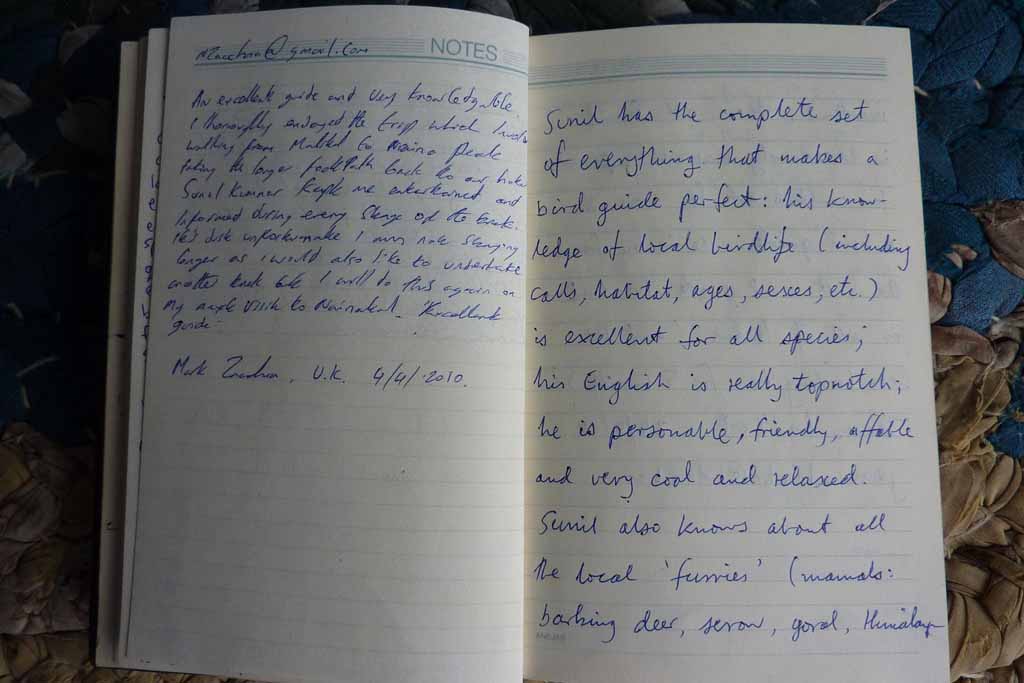 NOTES
@gmail.com
An excellent guide and very knowledgable.
I thoroughly enjoyed the trip which
walking from to Naina Peak
taking the longer footpath back to our hotel
Sunil Kumar kept me entertained and
informed during every stage of the trek.
It's just unfortunate I am not staying
longer as I would also like to undertake
another trek but I will do this again on
my next visit to Nainital. "Excellent
guide"
Mark, U.K. 4/4/2010.
Sunil has the complete set
of everything that makes a
bird guide perfect: his know-
ledge of local birdlife (including
calls, habitat, ages, sexes, etc.)
is excellent for all species;
his English is really topnotch;
he is personable, friendly, affable
and very cool and relaxed.
Sunil also knows about all
the local 'furries' (mamals:
barking deer, serow, goral, Himalayan